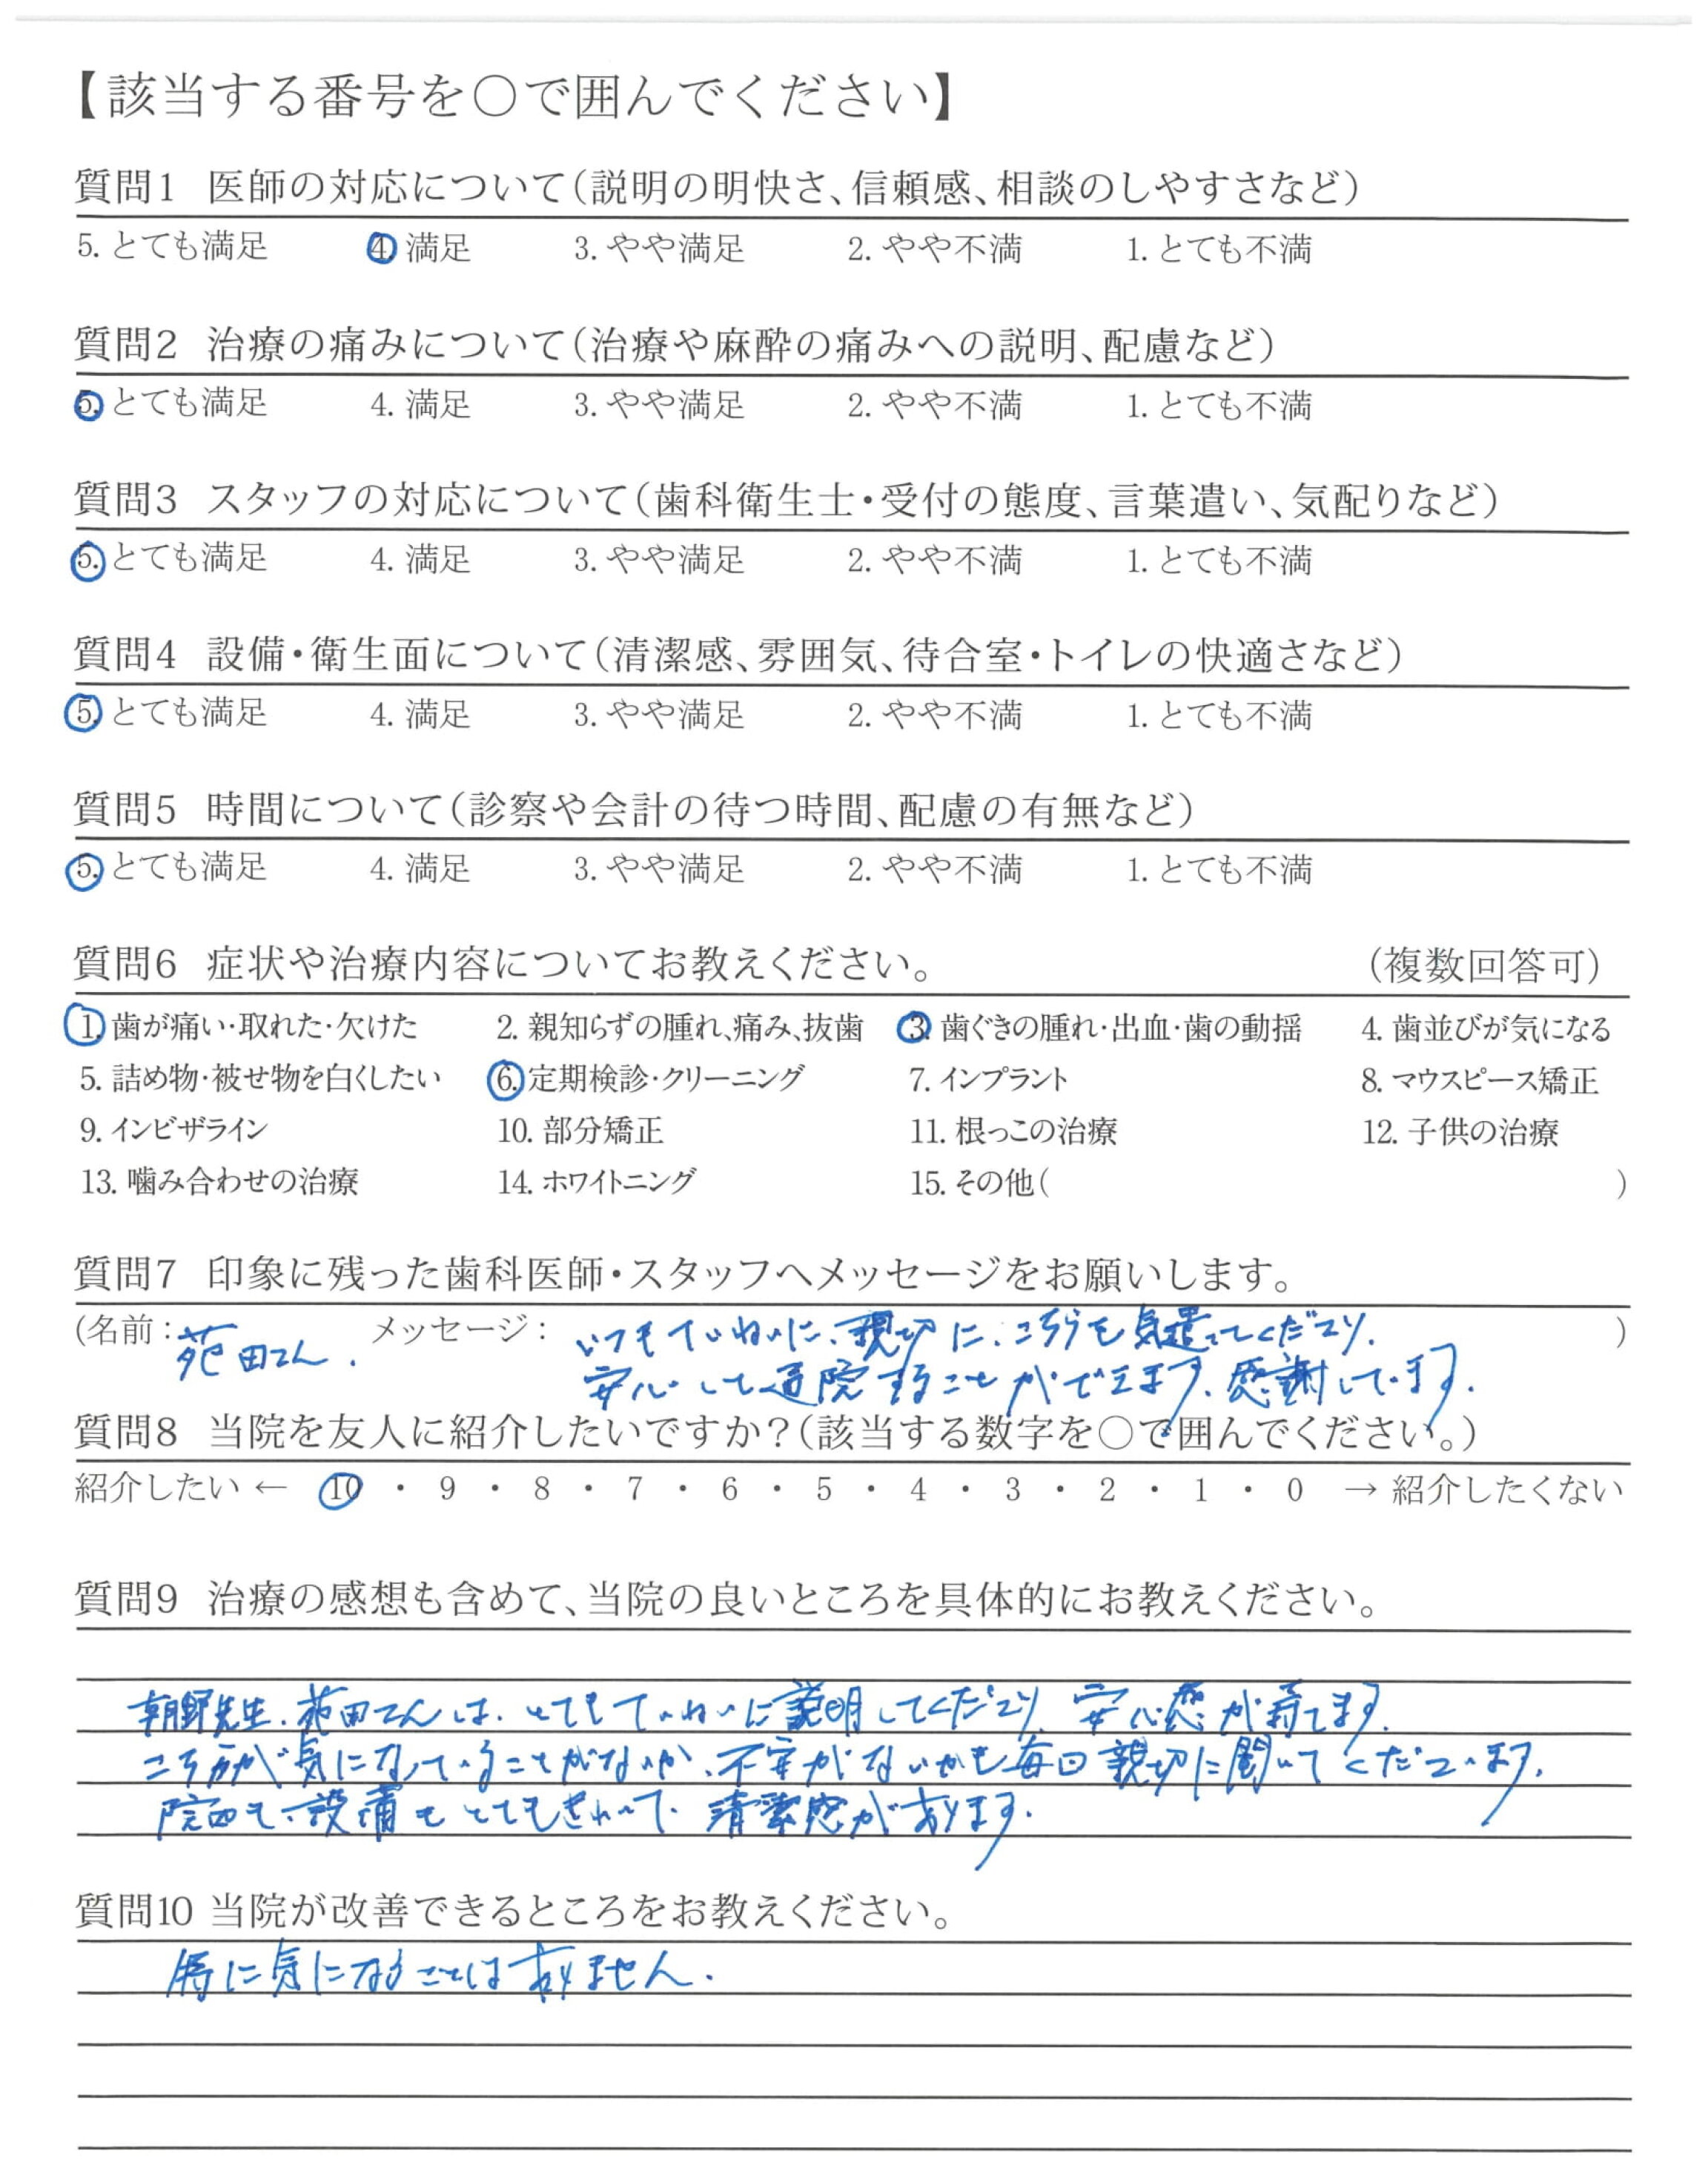 【該当する番号を〇で囲んでください】
質問1 医師の対応について(説明の明快さ、信頼感、相談のしやすさなど)
5. とても満足 4. 満足 3. やや満足 2. やや不満 1. とても不満
質問2 治療の痛みについて(治療や麻酔の痛みへの説明、配慮など)
5. とても満足 4. 満足 3. やや満足 2. やや不満 1. とても不満
質問3 スタッフの対応について(歯科衛生士・受付の態度、言葉遣い、気配りなど)
5. とても満足 4. 満足 3. やや満足 2. やや不満 1. とても不満
質問4 設備・衛生面について(清潔感、雰囲気、待合室・トイレの快適さなど)
5. とても満足 4. 満足 3. やや満足 2. やや不満 1. とても不満
質問5 時間について(診察や会計の待つ時間、配慮の有無など)
5. とても満足 4. 満足 3. やや満足 2. やや不満 1. とても不満
質問6 症状や治療内容についてお教えください。 (複数回答可)
1. 歯が痛い・取れた・欠けた 2. 親知らずの腫れ、痛み、抜歯 3. 歯ぐきの腫れ・出血・歯の動揺 4. 歯並びが気になる
5. 詰め物・被せ物を白くしたい 6. 定期検診・クリーニング 7. インプラント 8. マウスピース矯正
9. インビザライン 10. 部分矯正 11. 根っこの治療 12. 子供の治療
13. 噛み合わせの治療 14. ホワイトニング 15. その他( )
質問7 印象に残った歯科医師・スタッフへメッセージをお願いします。
(名前: 苑田さん. メッセージ: いつもていねいに、親切に、こちらを気遣ってくださり、 )
安心して通院することができます。感謝しています。
質問8 当院を友人に紹介したいですか?(該当する数字を〇で囲んでください。)
紹介したい ← 10 ・ 9 ・ 8 ・ 7 ・ 6 ・ 5 ・ 4 ・ 3 ・ 2 ・ 1 ・ 0 → 紹介したくない
質問9 治療の感想も含めて、当院の良いところを具体的にお教えください。
朝野先生、苑田さんは、とてもていねいに説明してくださり、安心感が持てます。
こちらが気になっていることがないか、不安がないかも毎回親切に聞いてくださいます。
院内も、設備もとてもきれいで、清潔感があります。
質問10 当院が改善できるところをお教えください。
特に気になることはありません。